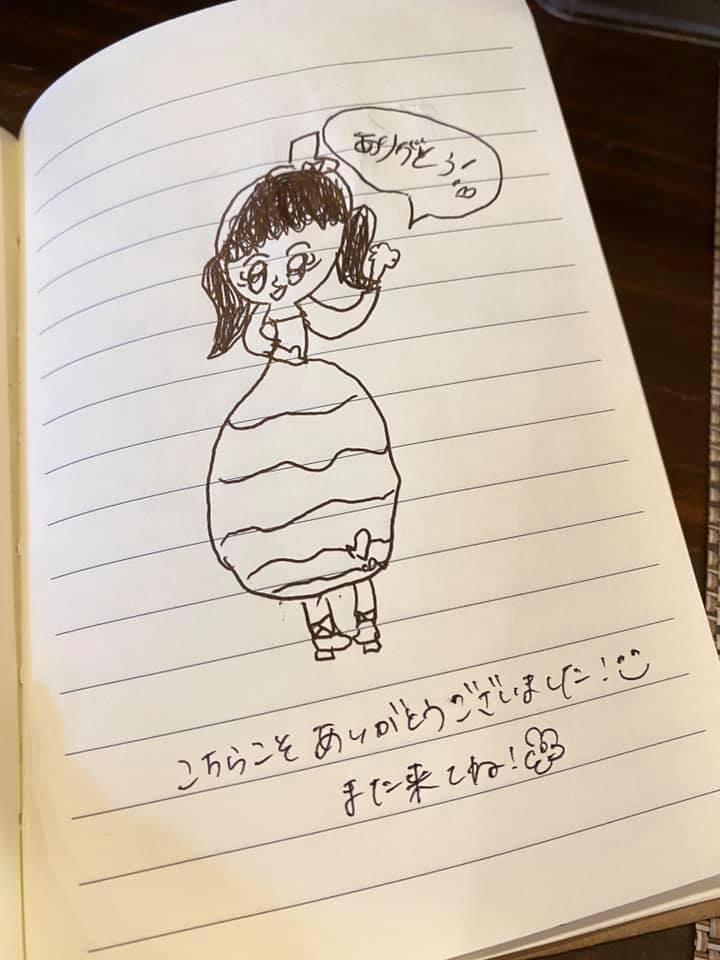 ありがとう!
こちらこそ ありがとうございました!
また来てね!